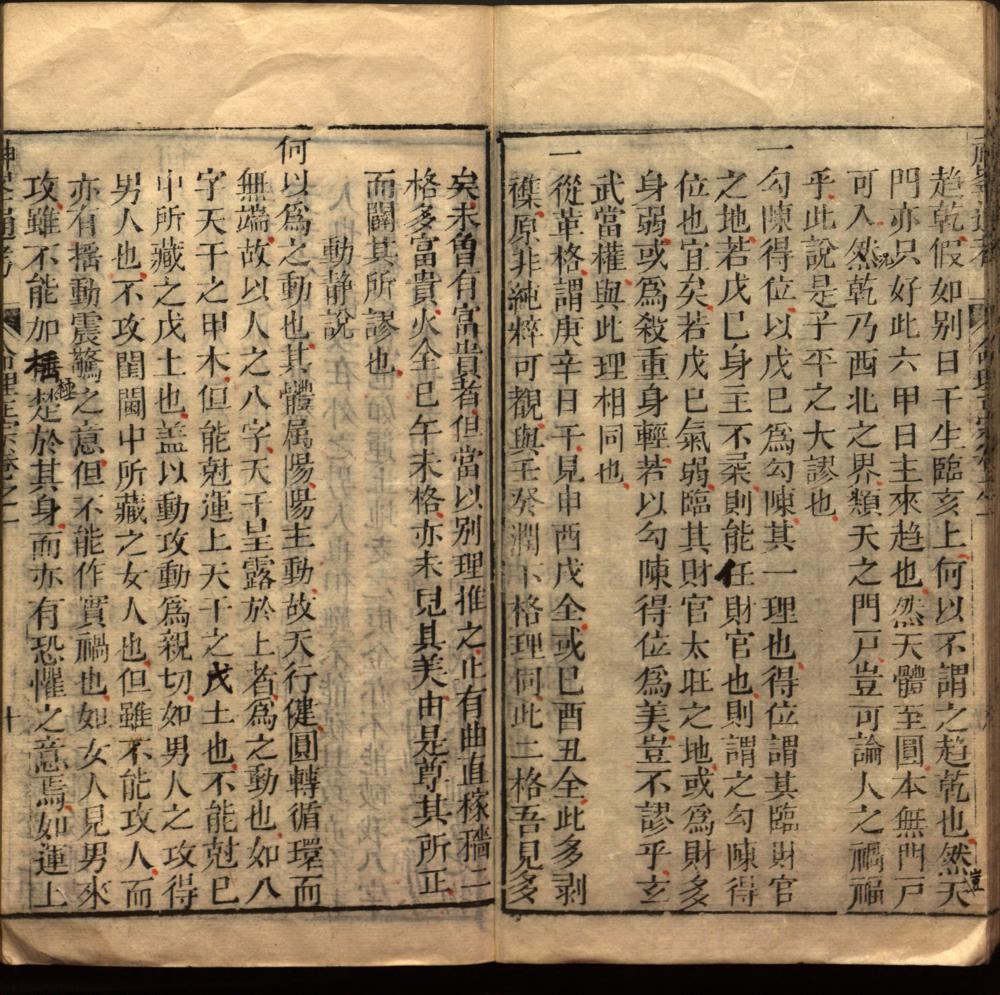 神峯通考
命理正宗卷之一
趋乾假如别日干生臨亥上何以不謂之趋乾也然天
門亦只好此六甲日主來趋也然天體至圓本無門戸
可入然况乾乃西北之界類天之門戸豈可論人之禍福
乎此說是子平之大謬也
一勾陳得位以戊巳爲勾陳其一理也得位謂其臨財官
之地若戊巳身主不柔則能任財官也則謂之勾陳得
位也宜矣若戊巳氣弱臨其財官太旺之地或爲財多
身弱或爲殺重身輕若以勾陳得位爲美豈不謬乎玄
武當權與此理相同也
一從革格謂庚辛日干見申酉戌全或巳酉丑全此多剥
雜原非純粹可觀與壬癸潤下格理同此二格吾見多
矣未曾有富貴者但當以别理推之止有曲直稼穡二
格多富貴火全巳午未格亦未見其美由是尊其所正
而闢其所謬也
動静說
何以爲之動也其體属陽陽主動故天行健圓轉循環而
無端故以人之八字天干呈露於上者爲之動也如八
字天干之甲木但能尅運上天干之戊土也不能尅巳
中所藏之戊土也盖以動攻動爲親切如男人之攻得
男人也不攻閨閫中所藏之女人也但雖不能攻人而
亦有摇動震驚之意但不能作實禍也如女人見男來
攻雖不能加棰楚於其身而亦有恐懼之意焉如運上
神峯通考
命理正宗卷之一
十